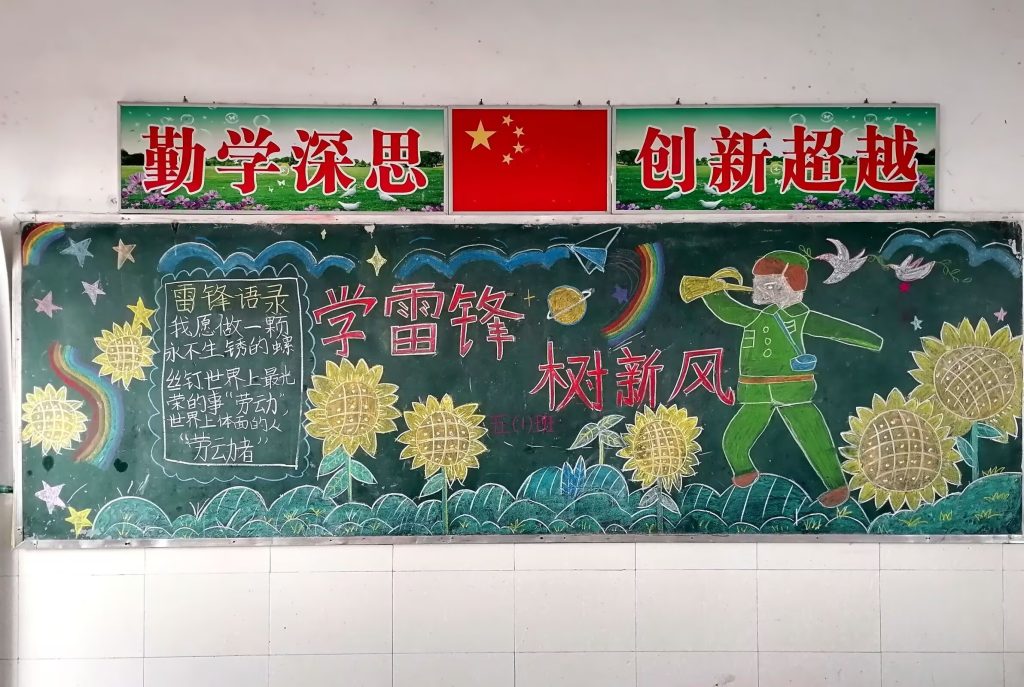 勤学深思
创新超越
雷锋语录
我愿做一颗
永不生锈的螺
丝钉世界上最光
荣的事“劳动”，
世界上体面的人
“劳动者”
学雷锋
树新风
五(1)班